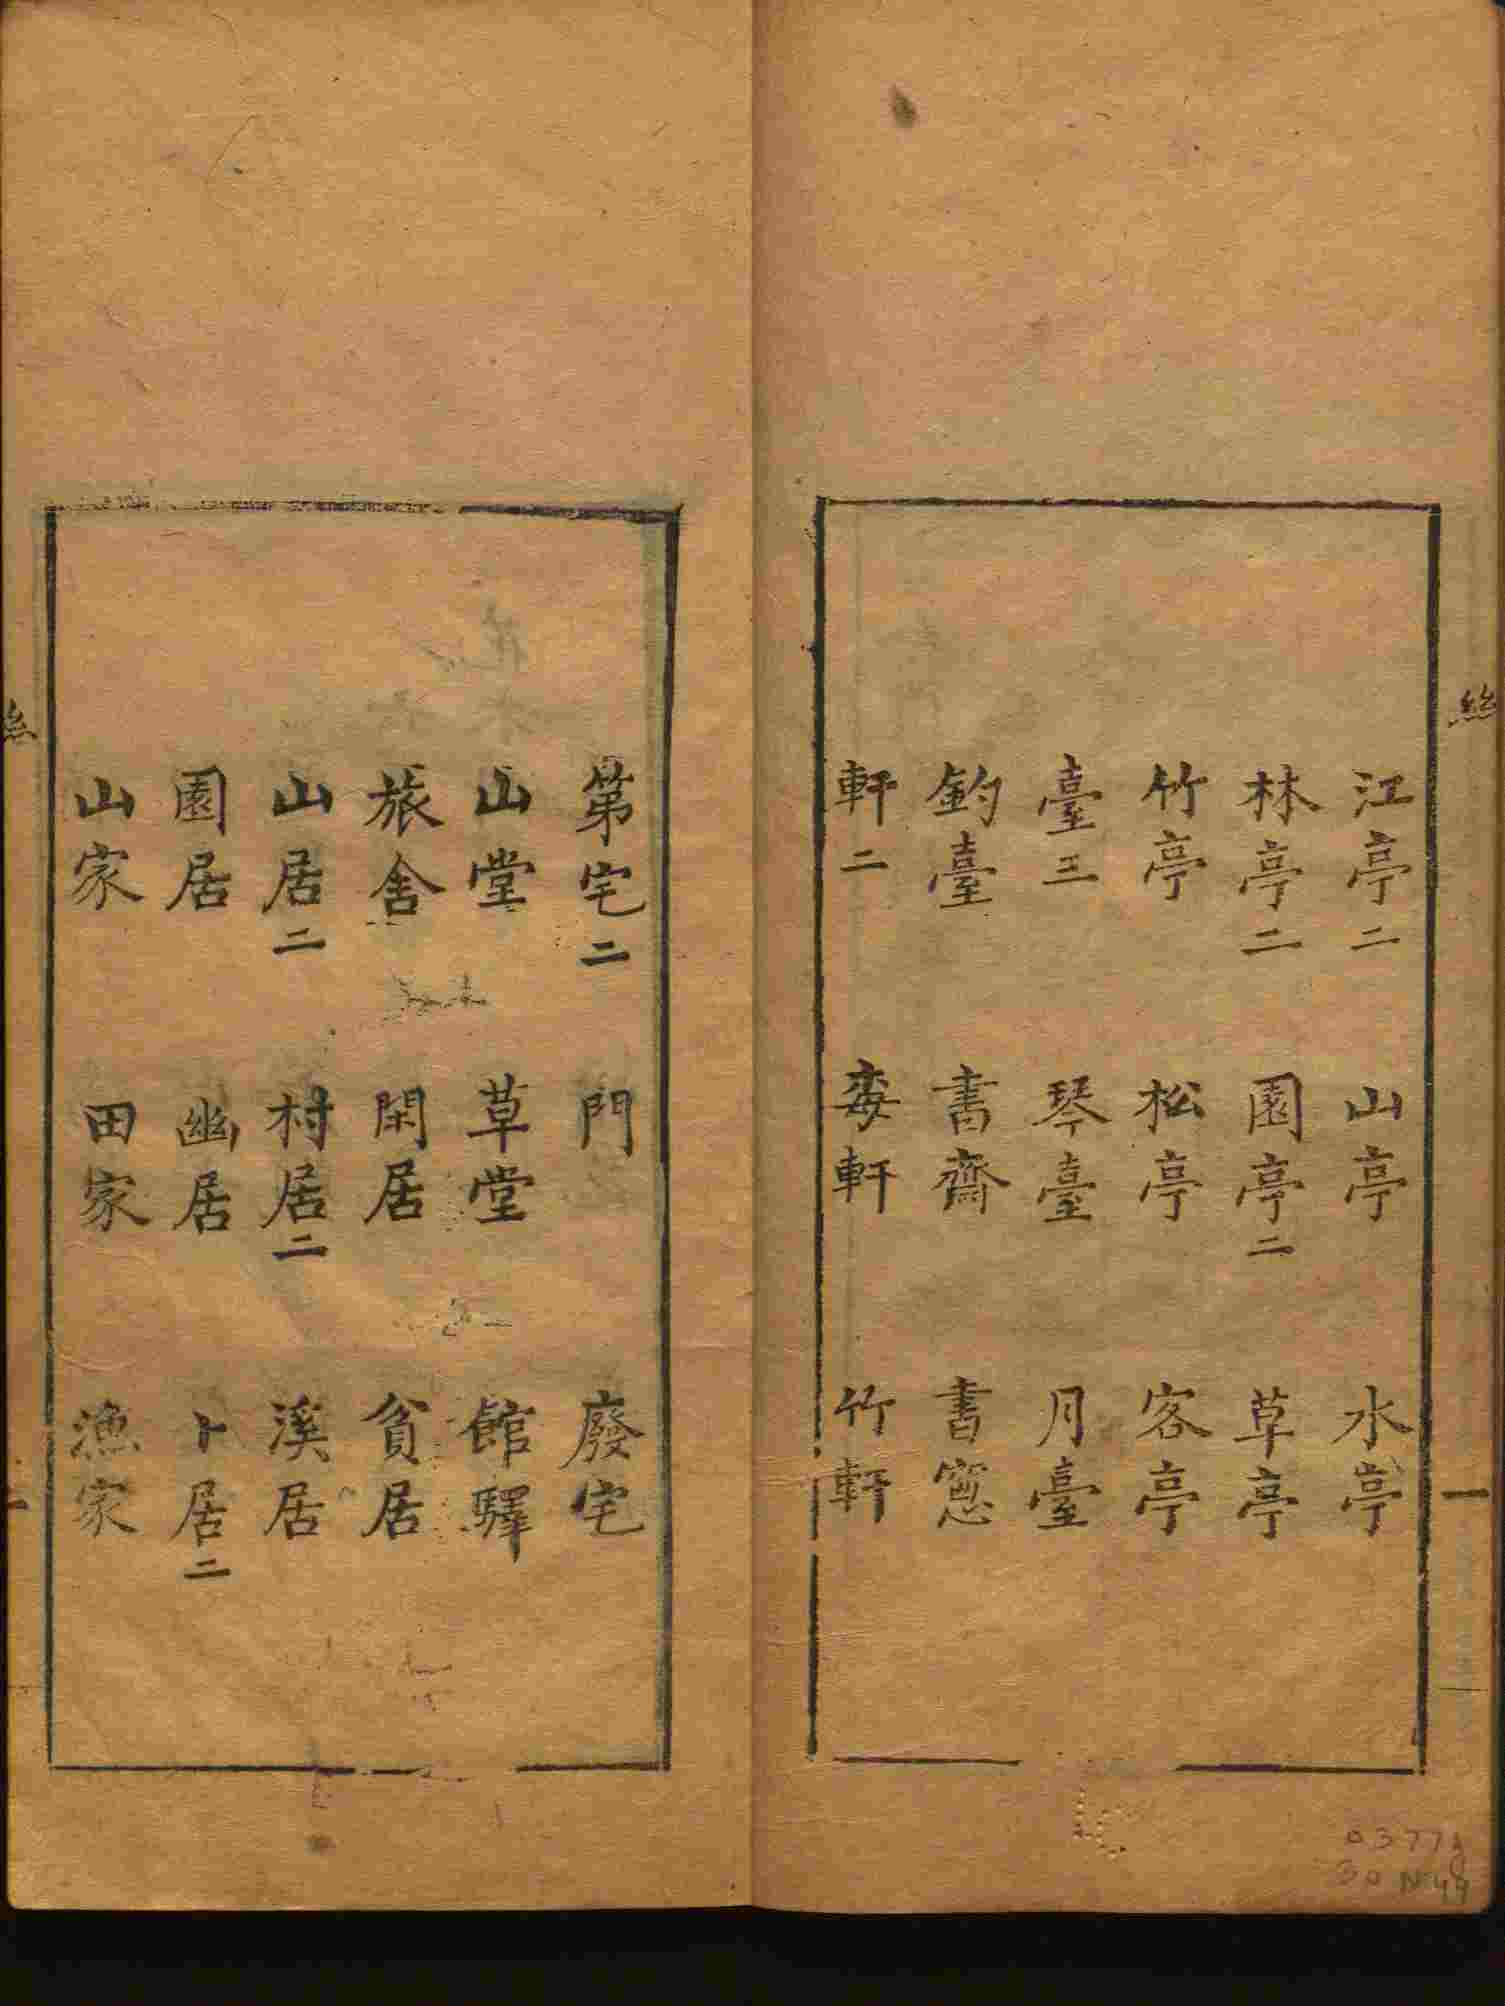 江亭二 山亭 水亭
林亭二 園亭二 草亭
竹亭 松亭 客亭
臺三 琴臺 月臺
釣臺 書齋 書窻
軒二 梅軒 竹軒
絲 一
第宅二 門 廢宅
山堂 草堂 館驛
旅舍 閑居 貧居
山居二 村居二 溪居
園居 幽居 卜居二
山家 田家 漁家
絲 一
03779
30 N44